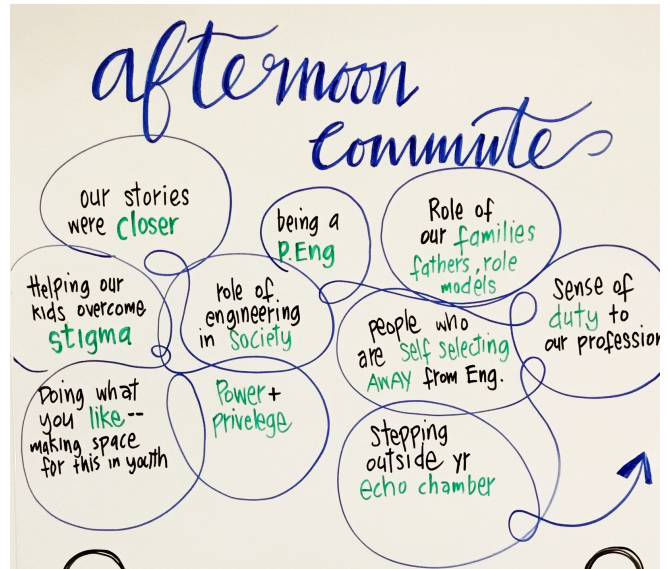 afternoon
commute
our stories
were closer
being a
P.Eng
Role of
our families
fathers, role
models
Helping our
kids overcome
stigma
role of
engineering
in Society
people who
are self selecting
AWAY from Eng.
Sense of
duty to
our profession
Doing what
you like--
making space
for this in youth
Power+
privelege
Stepping
outside yr
echo chamber